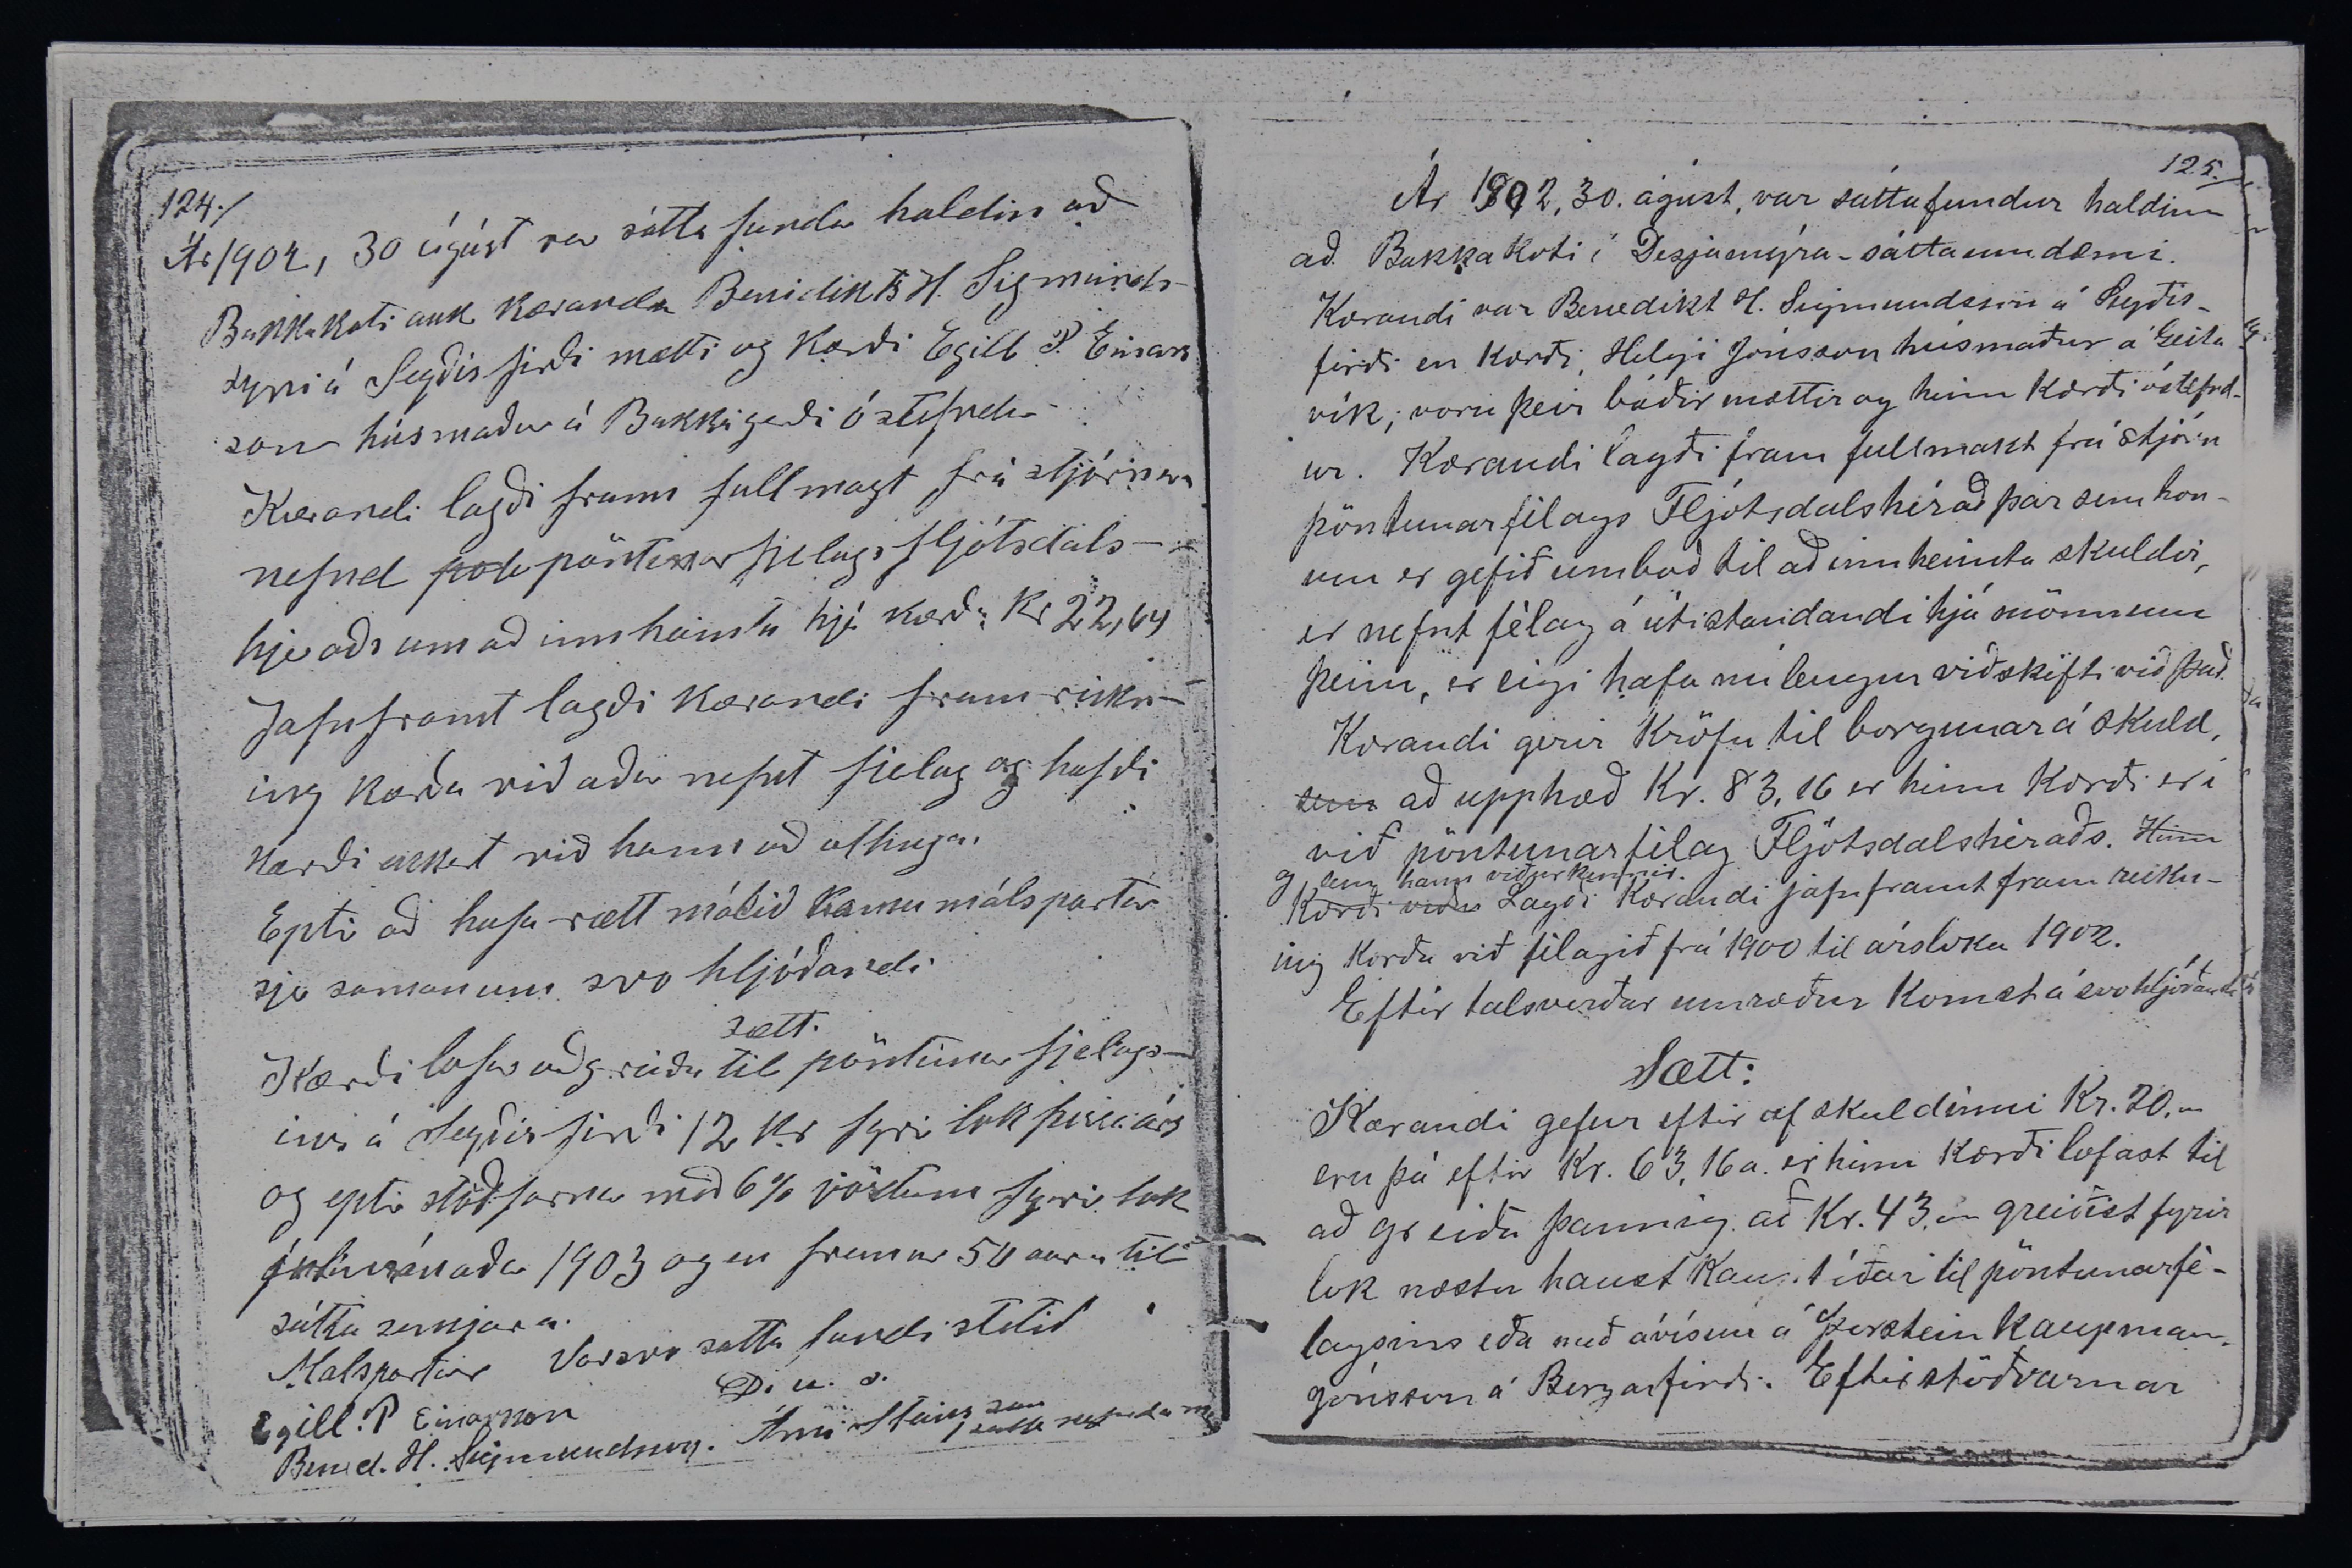 124./
Ár 1902, 30 ágúst var sátta fundur haldin að
Bakkakoti auk kæranda Benidikts H. Sigmunds-
syni á Seyðisfirði mætti og kærði Egill P. Einars
son húsmaður á Bakkagerði óstefndur
Kærandi lagði framm fullmagt frá stjórnar
nefnd pöntunar fjelags fljótsdals-
hjeraðs um að innheimta hjá kærða kr 22,64
Jafnframt lagði kærandi fram reikn-
ing kærða við áður nefnt fjelag og hafði
kærði ekkert við hann að athuga.
Eptir að hafa rætt málið kamu málspartar
sjer samanum svo hljóðandi
sætt.
Kærði lofar að greiða til pöntunar fjelags-
ins á Seyðisfirði 12 kr fyrir lok þessa árs
og eptir stöðvarnar með 6% vöxtum fyrir lok
júlímánaðar 1903 og en fremur 50 aura til
sátta semjara.
Malspartar Var svo sátta fundi slitið
D. u. s.
Egill. P Einarsson
Bened. H. Sigmundsson. Árni Steins son sátta nefndarm
125.
Ár 1902, 30. ágúst, var sáttafundur haldinn
að Bakkakoti í Desjamýra-sáttaumdæmi.
Kærandi var Benedikt H. Sigmundsson á Seyðis-
firði en kærði, Helgi Jónsson húsmaður á Geita
vík; voru þeir báðir mættir og hinn kærði óstefnd-
ur. Kærandi lagði fram fullmakt frá stjórn
pöntunarfélags Fljótsdalshérað þar sem hon-
um er gefið umboð til að innheimta skuldir,
er nefnt félag á útistandandi hjá mönnum
þeim, er eigi hafa nú lengur viðskifti við það.
Kærandi gerir kröfu til borgunar á skuld,
sem að upphæð Kr. 83,16 er hinn kærði er í
við pöntunarfélag Fljótsdalshéraðs. Hinn
og sem hann viðurkennir.
Kærði viður Lagði kærandi jafnframt fram reikn-
ing kærða við félagið frá 1900 til ársloka 1902.
Eftir talsverðar umræður komst á svohljóðandi
Sætt:
Kærandi gefur eftir af skuldinni Kr. 20,
eru þá eftir Kr. 63,16 a. er hinn kærði lofast til
að greiða þannig að Kr. 43. greiðist fyrir
lok næstu haust kauptíðar til pöntunarfé-
lagsins eða með ávísun á Þorstein kaupman.
Jónsson á Borgarfirði. Eftirstöðvarnar